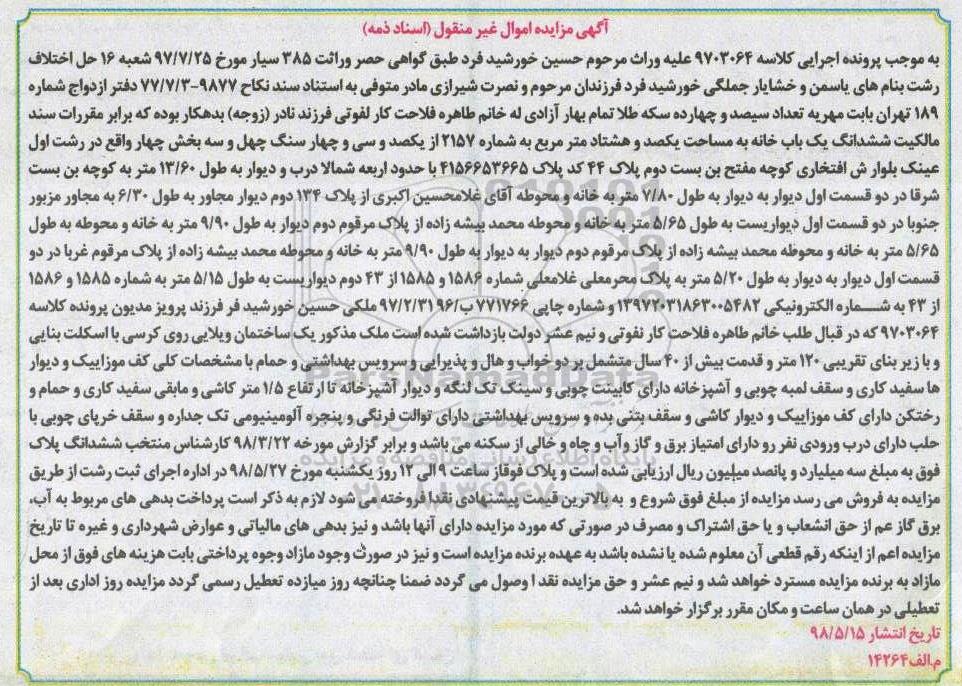 آگهی مزایده اموال غیر منقول (اسناد ذمه)
به موجب پرونده اجرایی کلاسه ۹۷۰۳۰۶۴ علیه وراث مرحوم حسین خورشید فرد طبق گواهی حصر وراثت ۳۸۵ سیار مورخ ۹۷/۷/۲۵ شعبه ۱۶ حل اختلاف
رشت بنام های یاسمن و خشایار جملگی خورشید فرد فرزندان مرحوم و نصرت شیرازی مادر متوفی به استناد سند نکاح ۹۸۷۷-۷۷/۷/۳ دفتر ازدواج شماره
۱۸۹ تهران بابت مهریه تعداد سیصد و چهارده سکه طلا تمام بهار آزادی له خانم طاهره فلاحت کار لفوتی فرزند نادر (زوجه) بدهکار بوده که برابر مقررات سند
مالکیت ششدانگ یک باب خانه به مساحت یکصد و هشتاد متر مربع به شماره ۲۱۵۷ از یکصد و سی و چهار سنگ چهل و سه بخش چهار واقع در رشت اول
عینک بلوار ش افتخاری کوچه مفتح بن بست دوم پلاک ۴۴ کد پلاک ۴۱۵۶۶۵۳۶۶۵ با حدود اربعه شمالا درب و دیوار به طول ۱۳/۶۰ متر به کوچه بن بست
شرقا در دو قسمت اول دیوار به دیوار به طول ۷/۸۰ متر به خانه و محوطه آقای غلامحسین اکبری از پلاک ۱۳۴ دوم دیوار مجاور به طول ۶/۳۰ به مجاور مزبور
جنوبا در دو قسمت اول دیواریست به طول ۵/۶۵ متر به خانه و محوطه محمد بیشه زاده از پلاک مرقوم دوم دیوار به طول ۹/۹۰ متر به خانه و محوطه به طول
۵/۶۵ متر به خانه و محوطه محمد بیشه زاده از پلاک مرقوم دوم دیوار به دیوار به طول ۹/۹۰ متر به خانه و محوطه محمد بیشه زاده از پلاک مرقوم غربا در دو
قسمت اول دیوار به دیوار به طول ۵/۲۰ متر به پلاک محرمعلی غلامعلی شماره ۱۵۸۶ و ۱۵۸۵ از ۴۳ دوم دیواریست به طول ۵/۱۵ متر به شماره ۱۵۸۵ و ۱۵۸۶
از ۴۳ به شماره الکترونیکی ۱۳۹۷۲۰۳۱۸۶۳۰۰۵۴۸۲ و شماره چاپی ۷۷۱۷۶۶ ب/۹۶ ۹۷/۲/۳۱ ملکی حسین خورشید فر فرزند پرویز مدیون پرونده کلاسه
۹۷۰۳۰۶۴ که در قبال طلب خانم طاهره فلاحت کار نفوتی و نیم عشر دولت بازداشت شده است ملک مذکور یک ساختمان ویلایی روی کرسی با اسکلت بنایی
و با زیر بنای تقریبی ۱۲۰ متر و قدمت بیش از ۴۰ سال متشمل بر ده خواب و هال و پذیرایی و سرویس بهداشتی و حمام با مشخصات کلی کف موزاییک و دیوار
ها سفید کاری و سقف لمبه چوبی و آشپزخانه دارای کابینت چوبی و سینک تک لنگه و دیوار آشپز خانه تا ارتفاع ۱/۵ متر کاشی و مابقی سفید کاری و حمام و
رختکن دارای کف موزاییک و دیوار کاشی و سقف بتنی بده و سرویس بهداشتی دارای توالت فرنگی و پنجره آلومینیومی تک جداره و سقف خرپای چوبی با
حلب دارای درب ورودی نفر رو دارای امتیاز برق و گاز و آب و چاه و خالی از سکنه می باشد و برابر گزارش مورخه ۹۸/۳/۲۲ کارشناس منتخب ششدانگ پلاک
فوق به مبلغ سه میلیارد و پانصد میلیون ریال ارزیابی شده است و پلاک فوقاز ساعت ۹ الی ۱۲ روز یکشنبه مورخ ۹۸/۵/۲۷ در اداره اجرای ثبت رشت از طریق
مزایده به فروش می رسد مزایده از مبلغ فوق شروع و به بالاترین قیمت پیشنهادی نقدا فروخته می شود لازم به ذکر است پرداخت بدهی های مربوط به آب،
برق گاز عم از حق انشعاب و یا حق اشتراک و مصرف در صورتی که مورد مزایده دارای آنها باشد و نیز بدهی های مالیاتی و عوارض شهرداری و غیره تا تاریخ
مزایده اعم از اینکه رقم قطعی آن معلوم شده یا نشده باشد به عهده برنده مزایده است و نیز در صورت وجود مازاد وجوه پرداختی بابت هزینه های فوق از محل
مازاد به برنده مزایده مسترد خواهد شد و نیم عشر و حق مزایده نقد ا وصول می گردد ضمنا چنانچه روز میازده تعطیل رسمی گردد مزایده روز اداری بعد از
تعطیلی در همان ساعت و مکان مقرر برگزار خواهد شد.
تاریخ انتشار ۹۸/۵/۱۵
م.الف۱۴۲۶۴